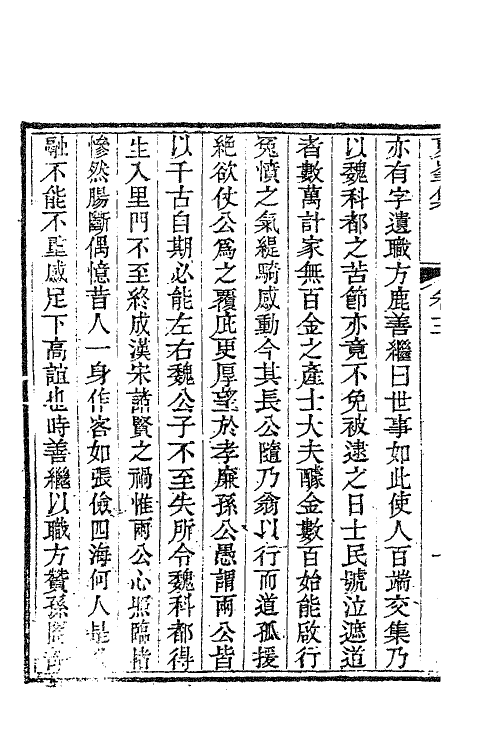 亦有字遺職方鹿善繼曰世事如此使人百端交集乃
以魏科都之苦節亦竟不免被逮之日士民號泣遮道
者數萬計家無百金之產士大夫醵金數百始能啟行
冤憤之氣緹騎感動今其長公隨乃翁以行而道孤援
絕欲仗公爲之覆庇更厚望於孝廉孫公愚謂兩公皆
以千古自期必能左右魏公子不至失所令魏科都得
生入里門不至終成漢宋諸賢之禍惟兩公心照臨楮
慘然腸斷偶憶昔人一身作客如張儉四海何人是
融不能不重感足下高誼也時善繼以職方贊孫